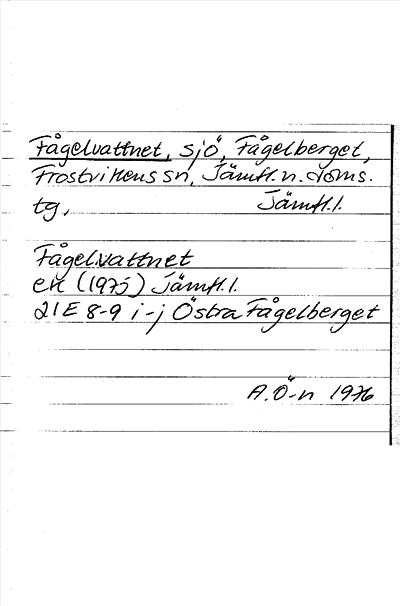 Fågelvattnet, sjö, Fågelberget,
Frostvikens sn, Jämtl. n. doms.
tg, Jämtl. l.
Fågelvattnet
ek (1975) Jämtl. l.
21E 8-9 i-j Östra Fågelberget
A. Ö-n 1976